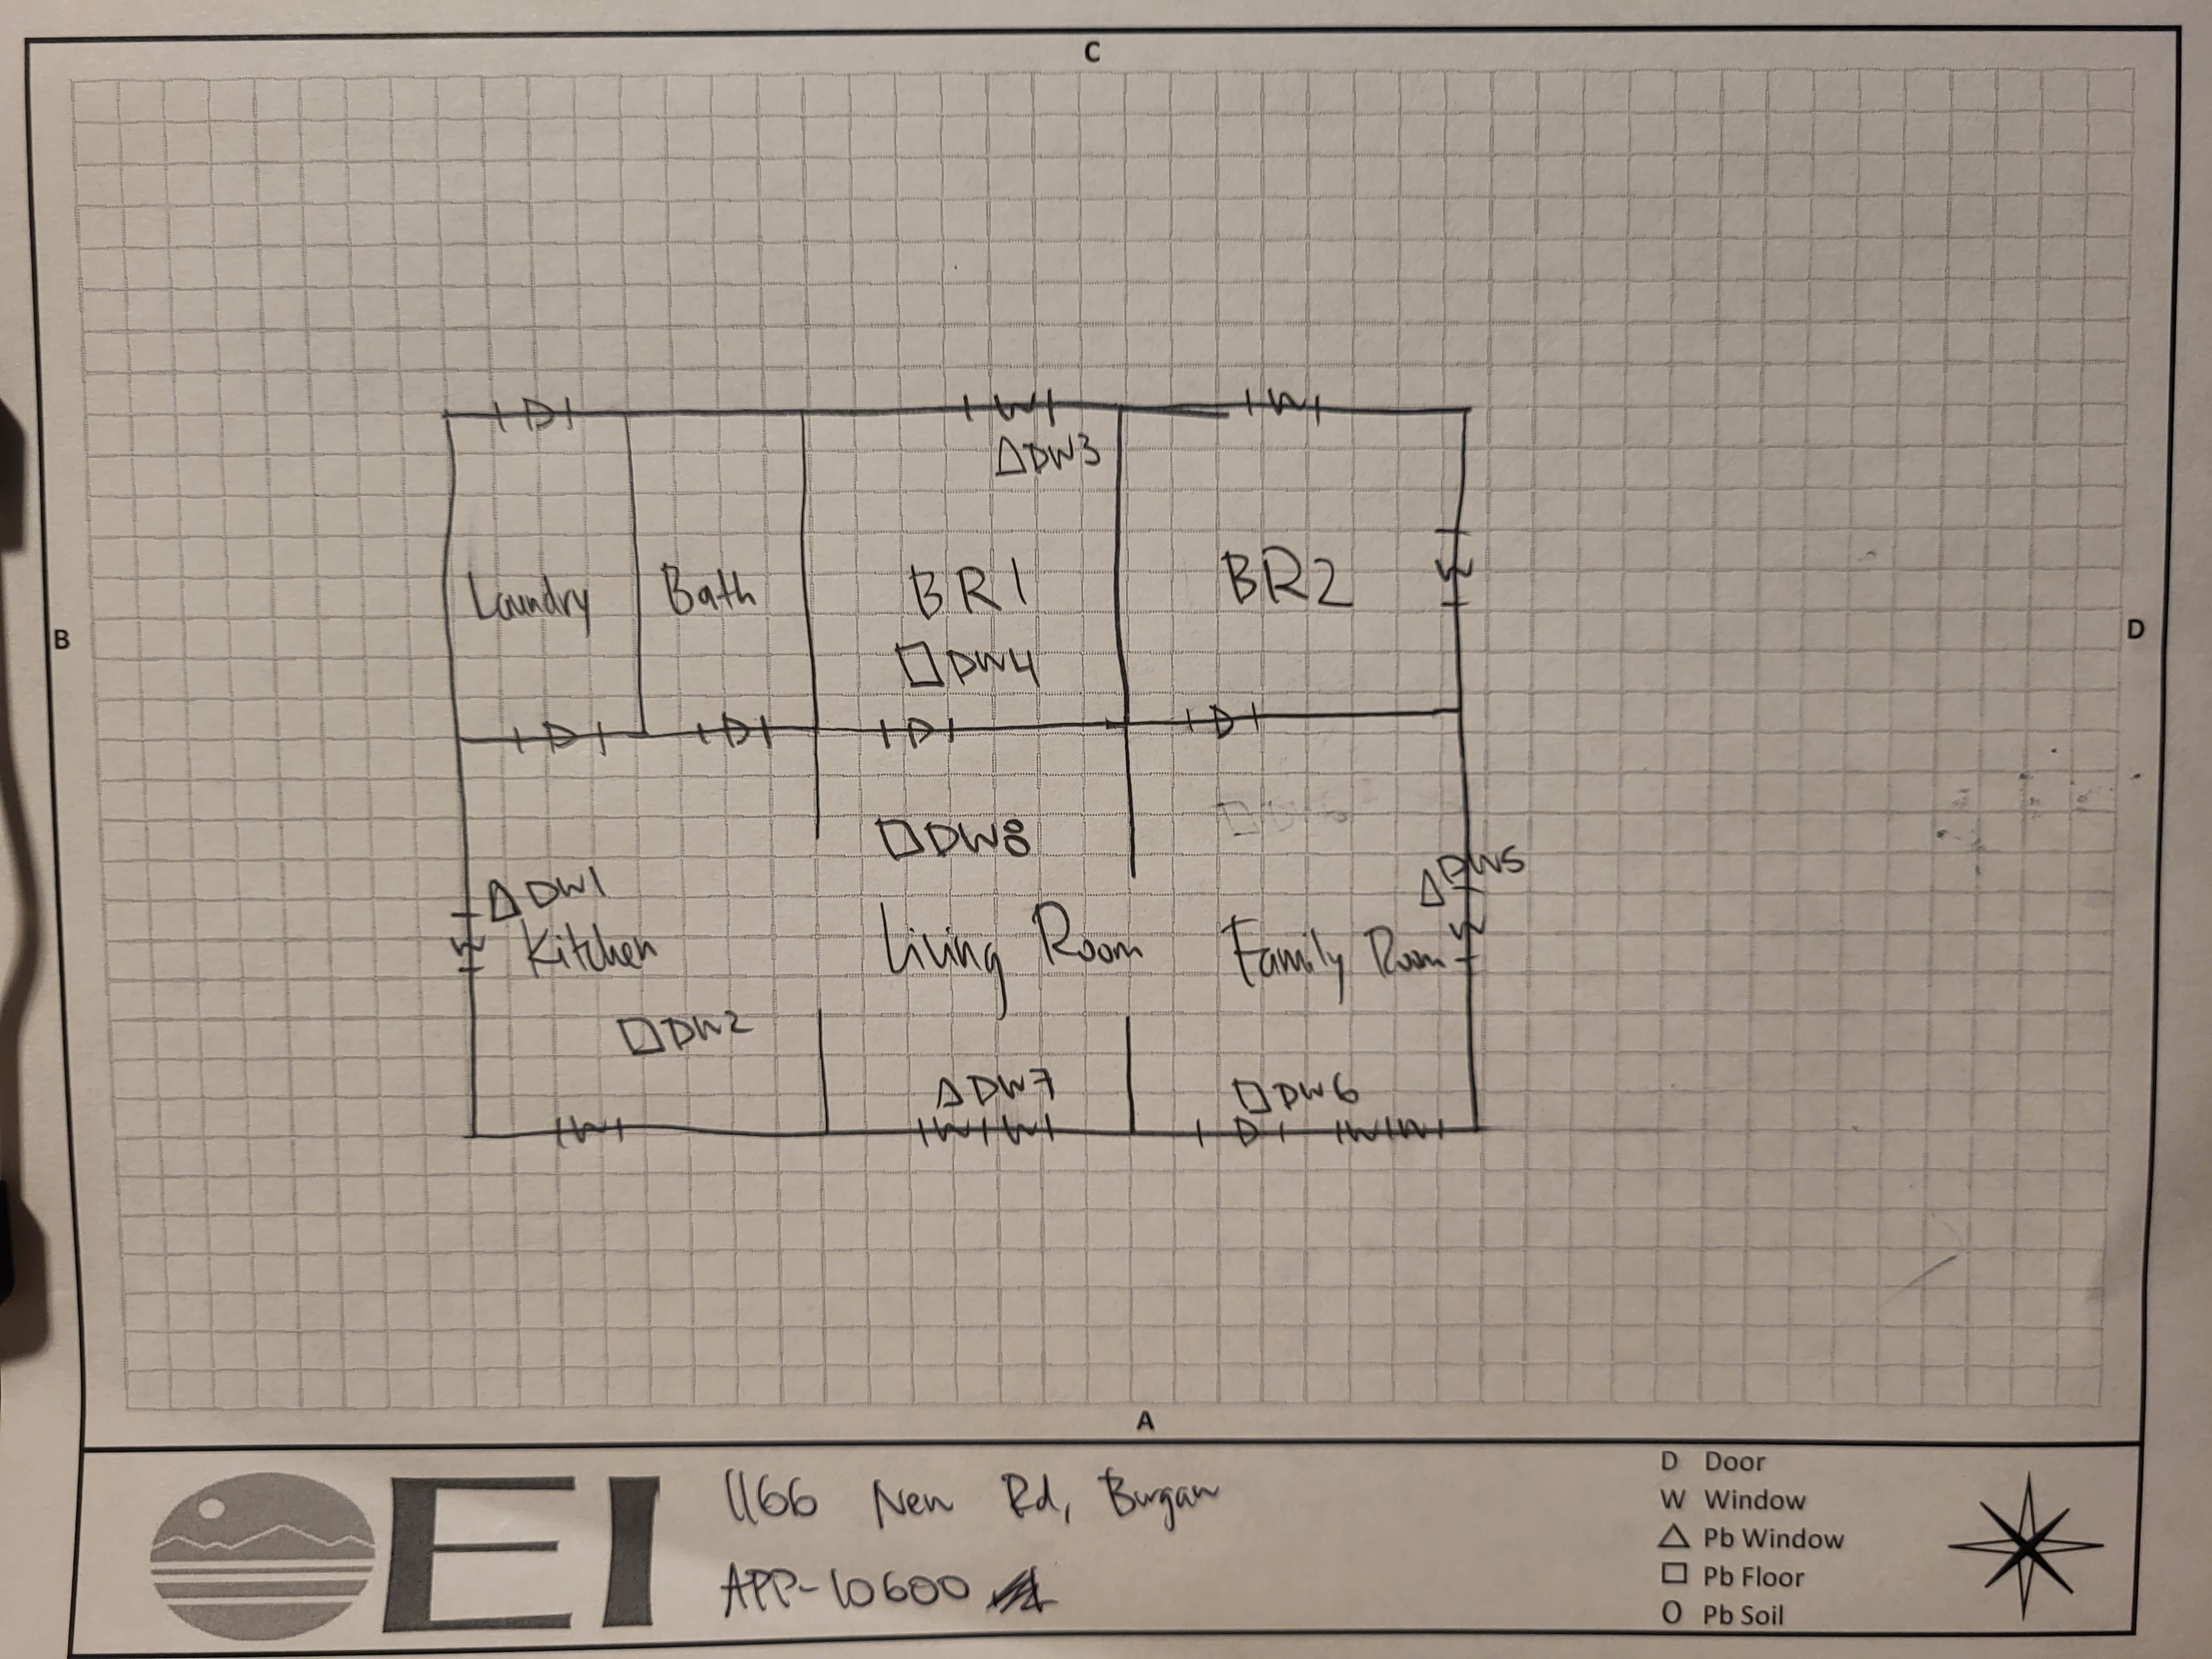 C
D
W
W
△DW3
W
Laundry
Bath
BR1
BR2
B
D
□DW4
D
D
D
D
□DW8
△DW1
△DW5
W
W
Kitchen
Living Room
Family Room
□DW2
△DW7
□DW6
W
W W
D
W W
A
EI
1166 New Rd,
APP-10600
D Door
W Window
△ Pb Window
□ Pb Floor
O Pb Soil